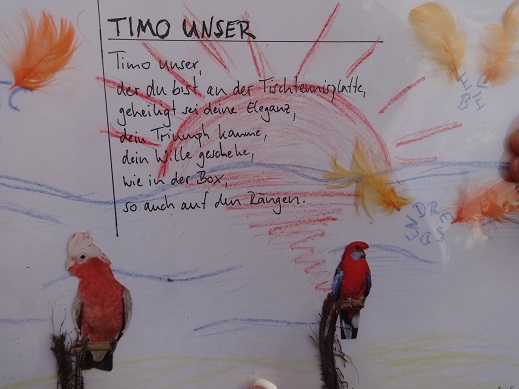 TIMO UNSER
Timo unser,
der du bist an der Tischtennisplatte,
geheiligt sei deine Eleganz,
dein Triumph komme,
dein Wille geschehe,
wie in der Box,
so auch auf den Rängen.